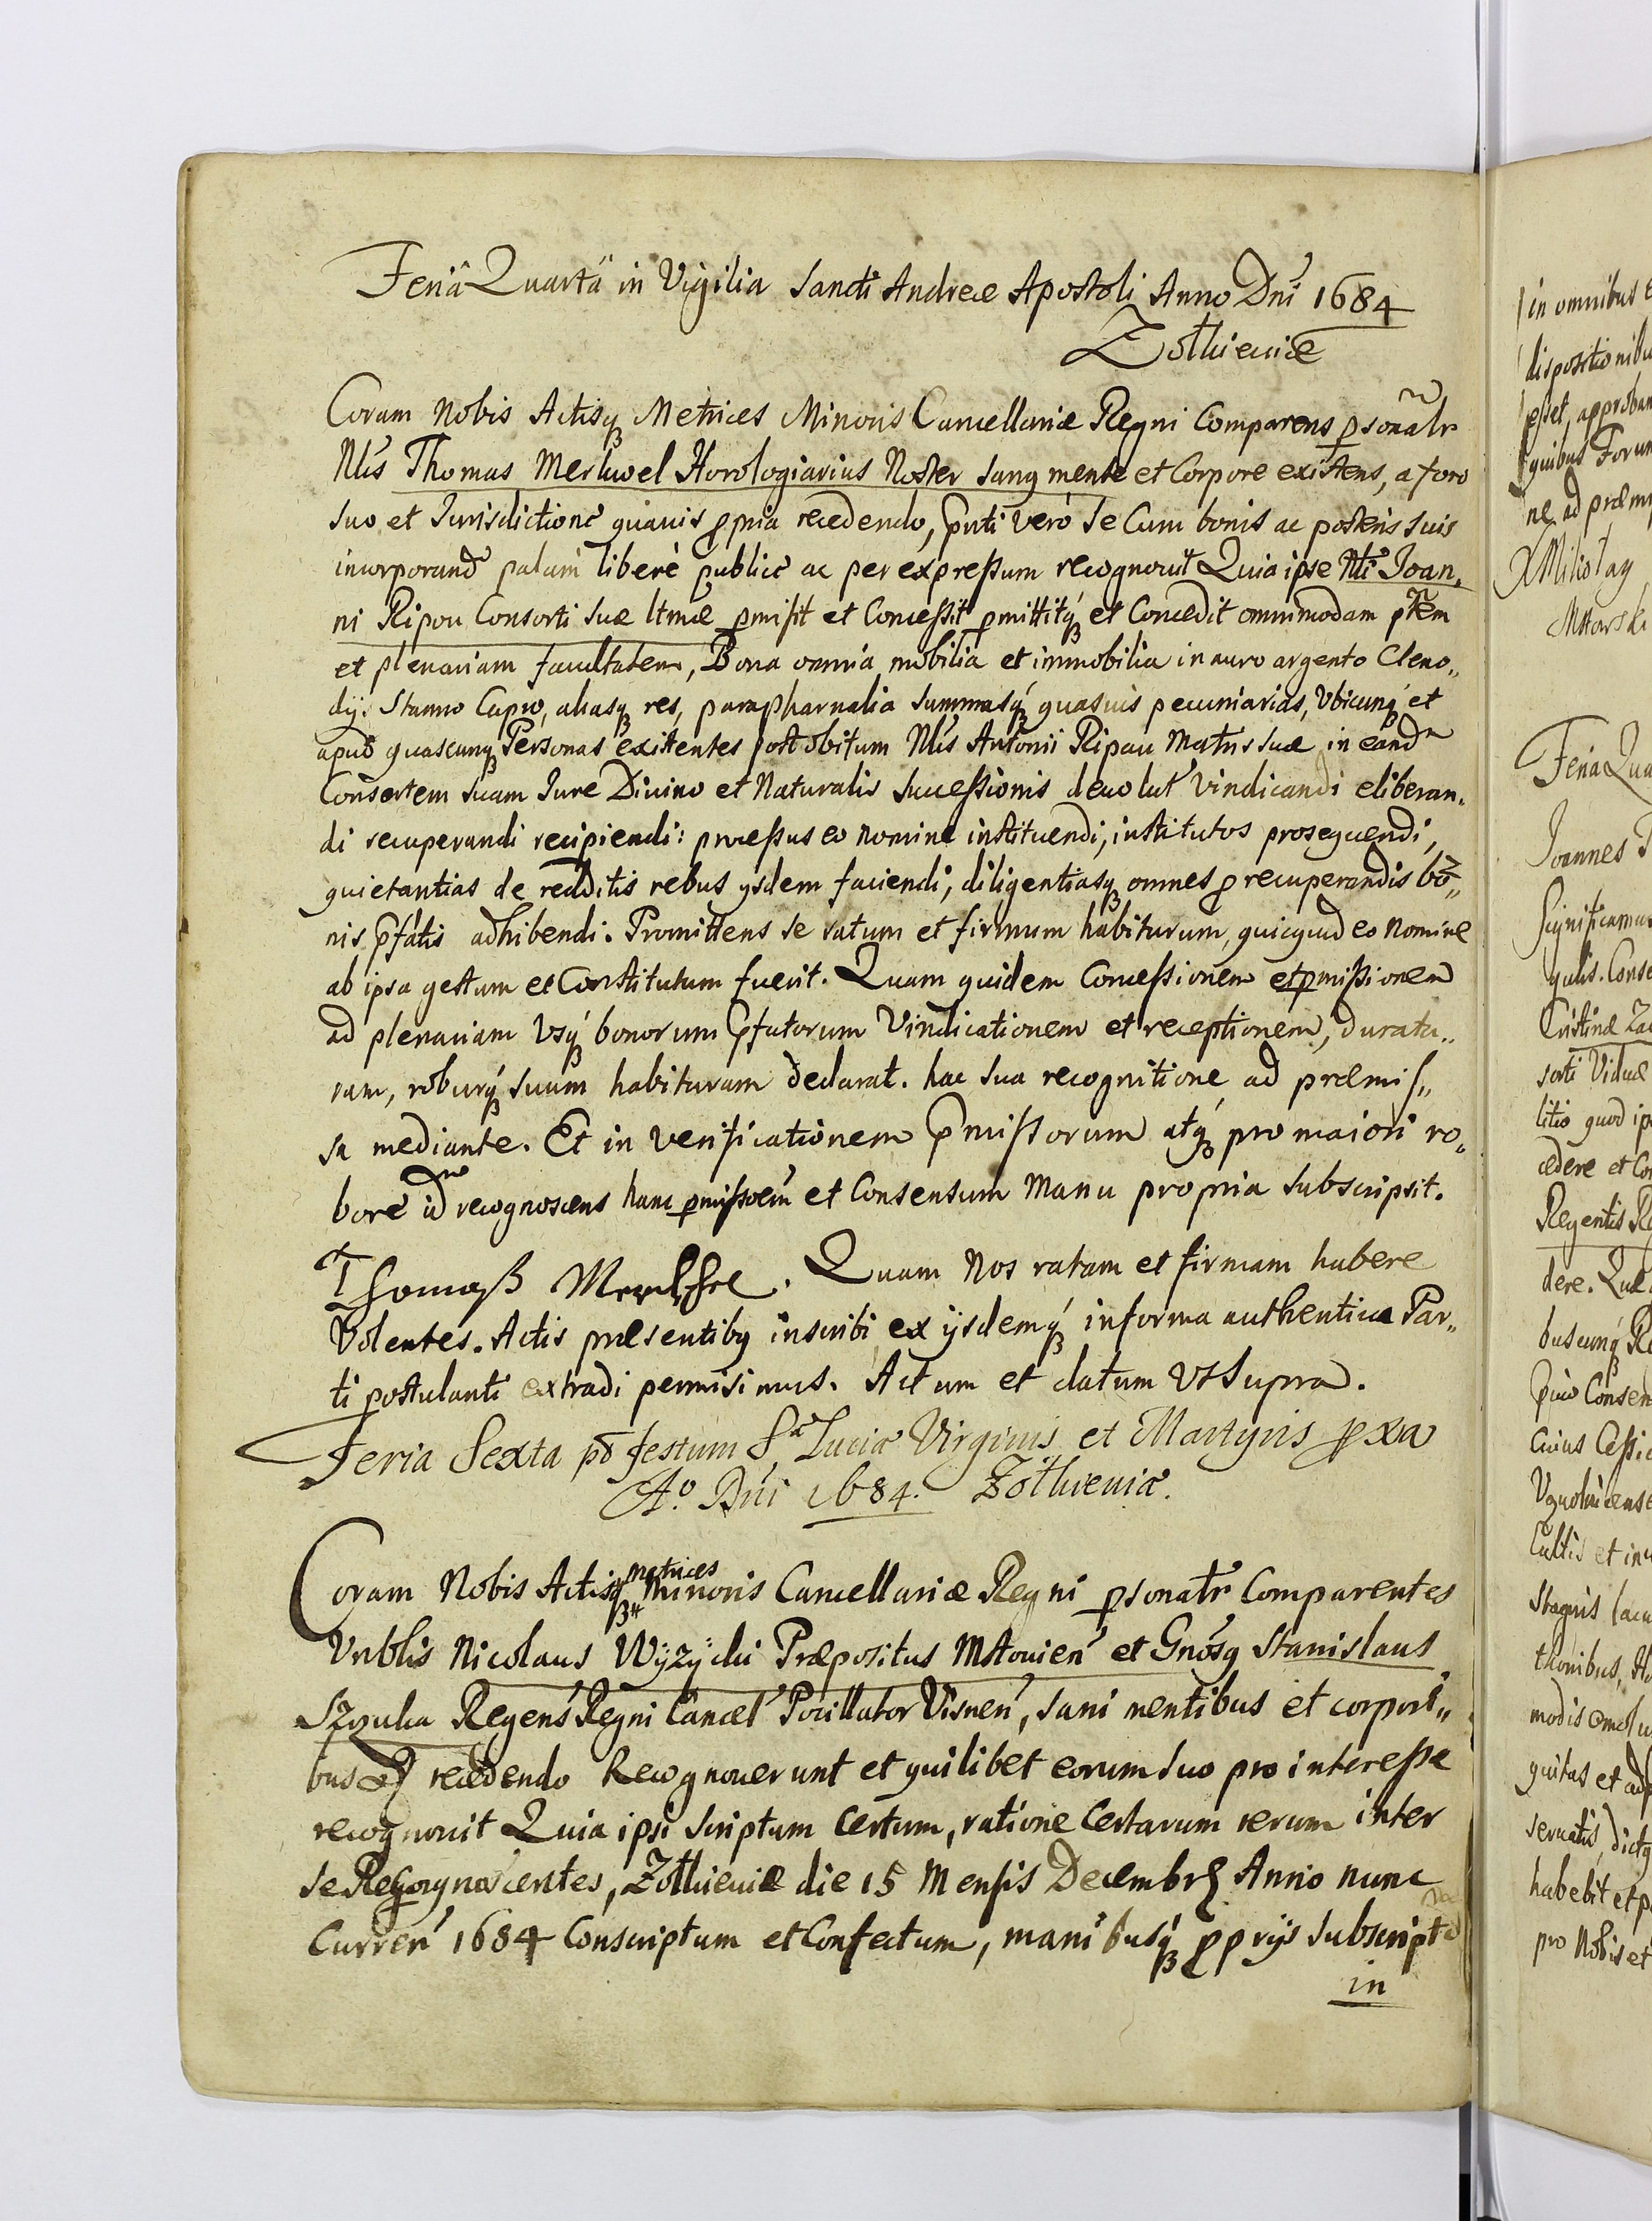 Feriâ Quartâ in Vigilia Sancti Andreæ Apostoli Anno Dni 1684
Zolkieuiæ
Coram Nobis Actisq Metrices Minoris Cancellariæ Regni Comparens psonalr
Nlis Thomas Merkwel Horologiarius Noster sanq mente et Corpore existens, a foro
suo et Jurisdictione quauis ppria recedendo, pnti verò se Cum bonis ac posteris suis
incorporand palam liberè publice ac per expressum recognouit Quia ipse Nli Joan,
ni Ripou Consorti suæ ltmæ pmisit et Concessit pmittitq et Concedit omnimodam ptem
et plenariam facultatem, Bona omnia mobilia et immobilia in auro argento Cleno,,
dijs Stanno Cupro, aliasq res, parapharnalia summasq quasuis pecuniarias, Vbicunq et
apud quascunq Personas existentes post obitum Nlis Antonii Ripau Matris suæ in eand
Consortem suam Jure Diuino et Naturalis Successionis deuolut Vindicandi eliberan,
di recuperandi recipiendi: processus eo nomine instituendi, institutos prosequendi,
quietantias de redditis rebus ysdem faciendi, diligentiasq omnes p recuperandis bo,,
nis pfatis adhibendi. Promittens se ratum et firmum habiturum, quicquid eo Nomine
ab ipsa gestum et Constitutum fuerit. Quam quidem Concessionem et pmissionem
ad plenariam Vsq bonorum pfatorum Vindicationem et receptionem, duratu,,
ram, roburq suum habituram declarat. hac sua recognitione ad præmis,,
sa mediante. Et in verificationem pmissorum atq pro maiori ro,
bore id recognoscens hanc pmissoem et Consensum Manu propria subscripsit.
Thomaß . Quam Nos ratam et firmam habere
Volentes. Actis præsentibq inscribi ex ijsdemq in forma authentica Par,,
ti postulanti extradi permisimus. Actum et datum Vt Supra.
Feria Sexta pd festum S Luciæ Virginis et Martyris pxa
Ao Dni 1684. Zolkieuiæ.
Coram Nobis Actisq Metrices Minoris Cancellariæ Regni psonalr Comparentes
Vnblis Nicolaus Wyzycki Præpositus Mstouien et Gnosq Stanislaus
Szczuka Regens Regni Cancel Pocillator Visnen, sani mentibus et corpori,,
bus recedendo Recognouerunt et quilibet eorum suo pro interesse
recognouit Quia ipsi scriptum Certum, ratione Certarum rerum inter
se Recognoscentes, Zolkieuiæ die 15 Mensis Decembr Anno nunc
Curren 1684 Conscriptum et Confectum, manibusq pprijs subscript
in
in omnibus
dispositionibu
esset, approban
quibus Forum
ne ad præm
Mikołay
Feria Qua
Joannes
Significamus
Regentis
dere.
Cultis et
habebit et
pro Nobis et